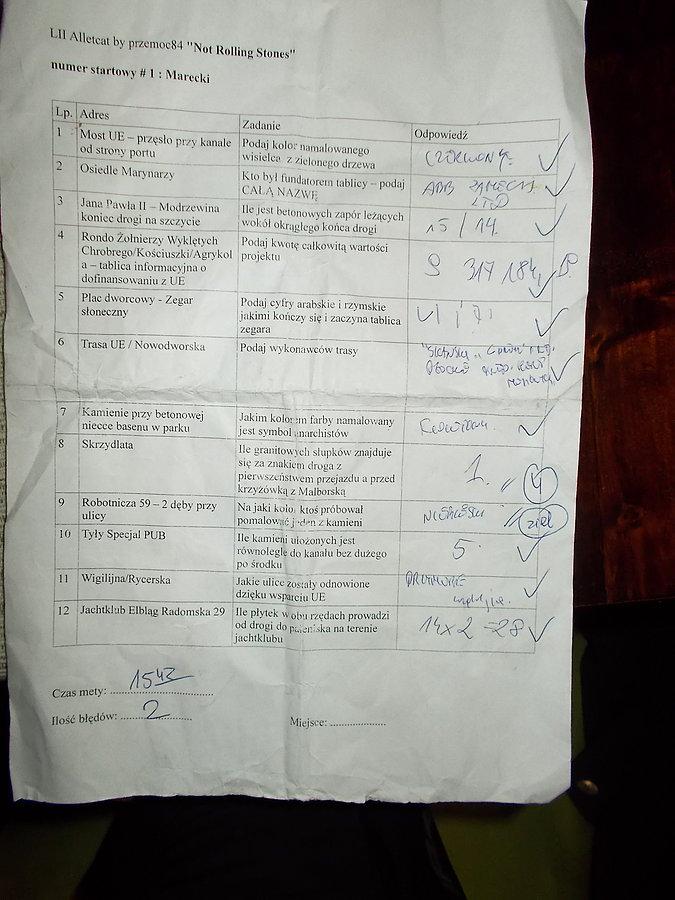 LII Alletcat by przemoc84 "Not Rolling Stones"
numer startowy # 1 : Marecki
Lp. Adres Zadanie Odpowiedź
1 Most UE – przęsło przy kanale od strony portu
Podaj kolor namalowanego wisielca z zielonego drzewa
CZERWONY
2 Osiedle Marynarzy
Kto był fundatorem tablicy – podaj CAŁĄ NAZWĘ
ABB ZAMECH LTD
3 Jana Pawła II – Modrzewina koniec drogi na szczycie
Ile jest betonowych zapór leżących wokół okrągłego końca drogi
15 / 14
4 Rondo Żołnierzy Wyklętych Chrobrego/Kościuszki/Agrykola – tablica informacyjna o dofinansowaniu z UE
Podaj kwotę całkowitą wartości projektu
9 317 184,
5 Plac dworcowy - Zegar słoneczny
Podaj cyfry arabskie i rzymskie jakimi kończy się i zaczyna tablica zegara
6 Trasa UE / Nowodworska
Podaj wykonawców trasy
7 Kamienie przy betonowej niecce basenu w parku
Jakim kolorem farby namalowany jest symbol anarchistów
8 Skrzydlata
Ile granitowych słupków znajduje się za znakiem droga z pierwszeństwem przejazdu a przed krzyżówką z Malborską
1. 4
9 Robotnicza 59 – 2 dęby przy ulicy
Na jaki kolor ktoś próbował pomalować jeden z kamieni
NIEBIESKI ziel
10 Tyły Specjal PUB
Ile kamieni ułożonych jest równolegle do kanału bez dużego po środku
5
11 Wigilijna/Rycerska
Jakie ulice zostały odnowione dzięki wsparciu UE
12 Jachtklub Elbląg Radomska 29
Ile płytek w obu rzędach prowadzi od drogi do paleniska na terenie jachtklubu
14x2 =28
Czas mety: 1542
Ilość błędów: 2
Miejsce: